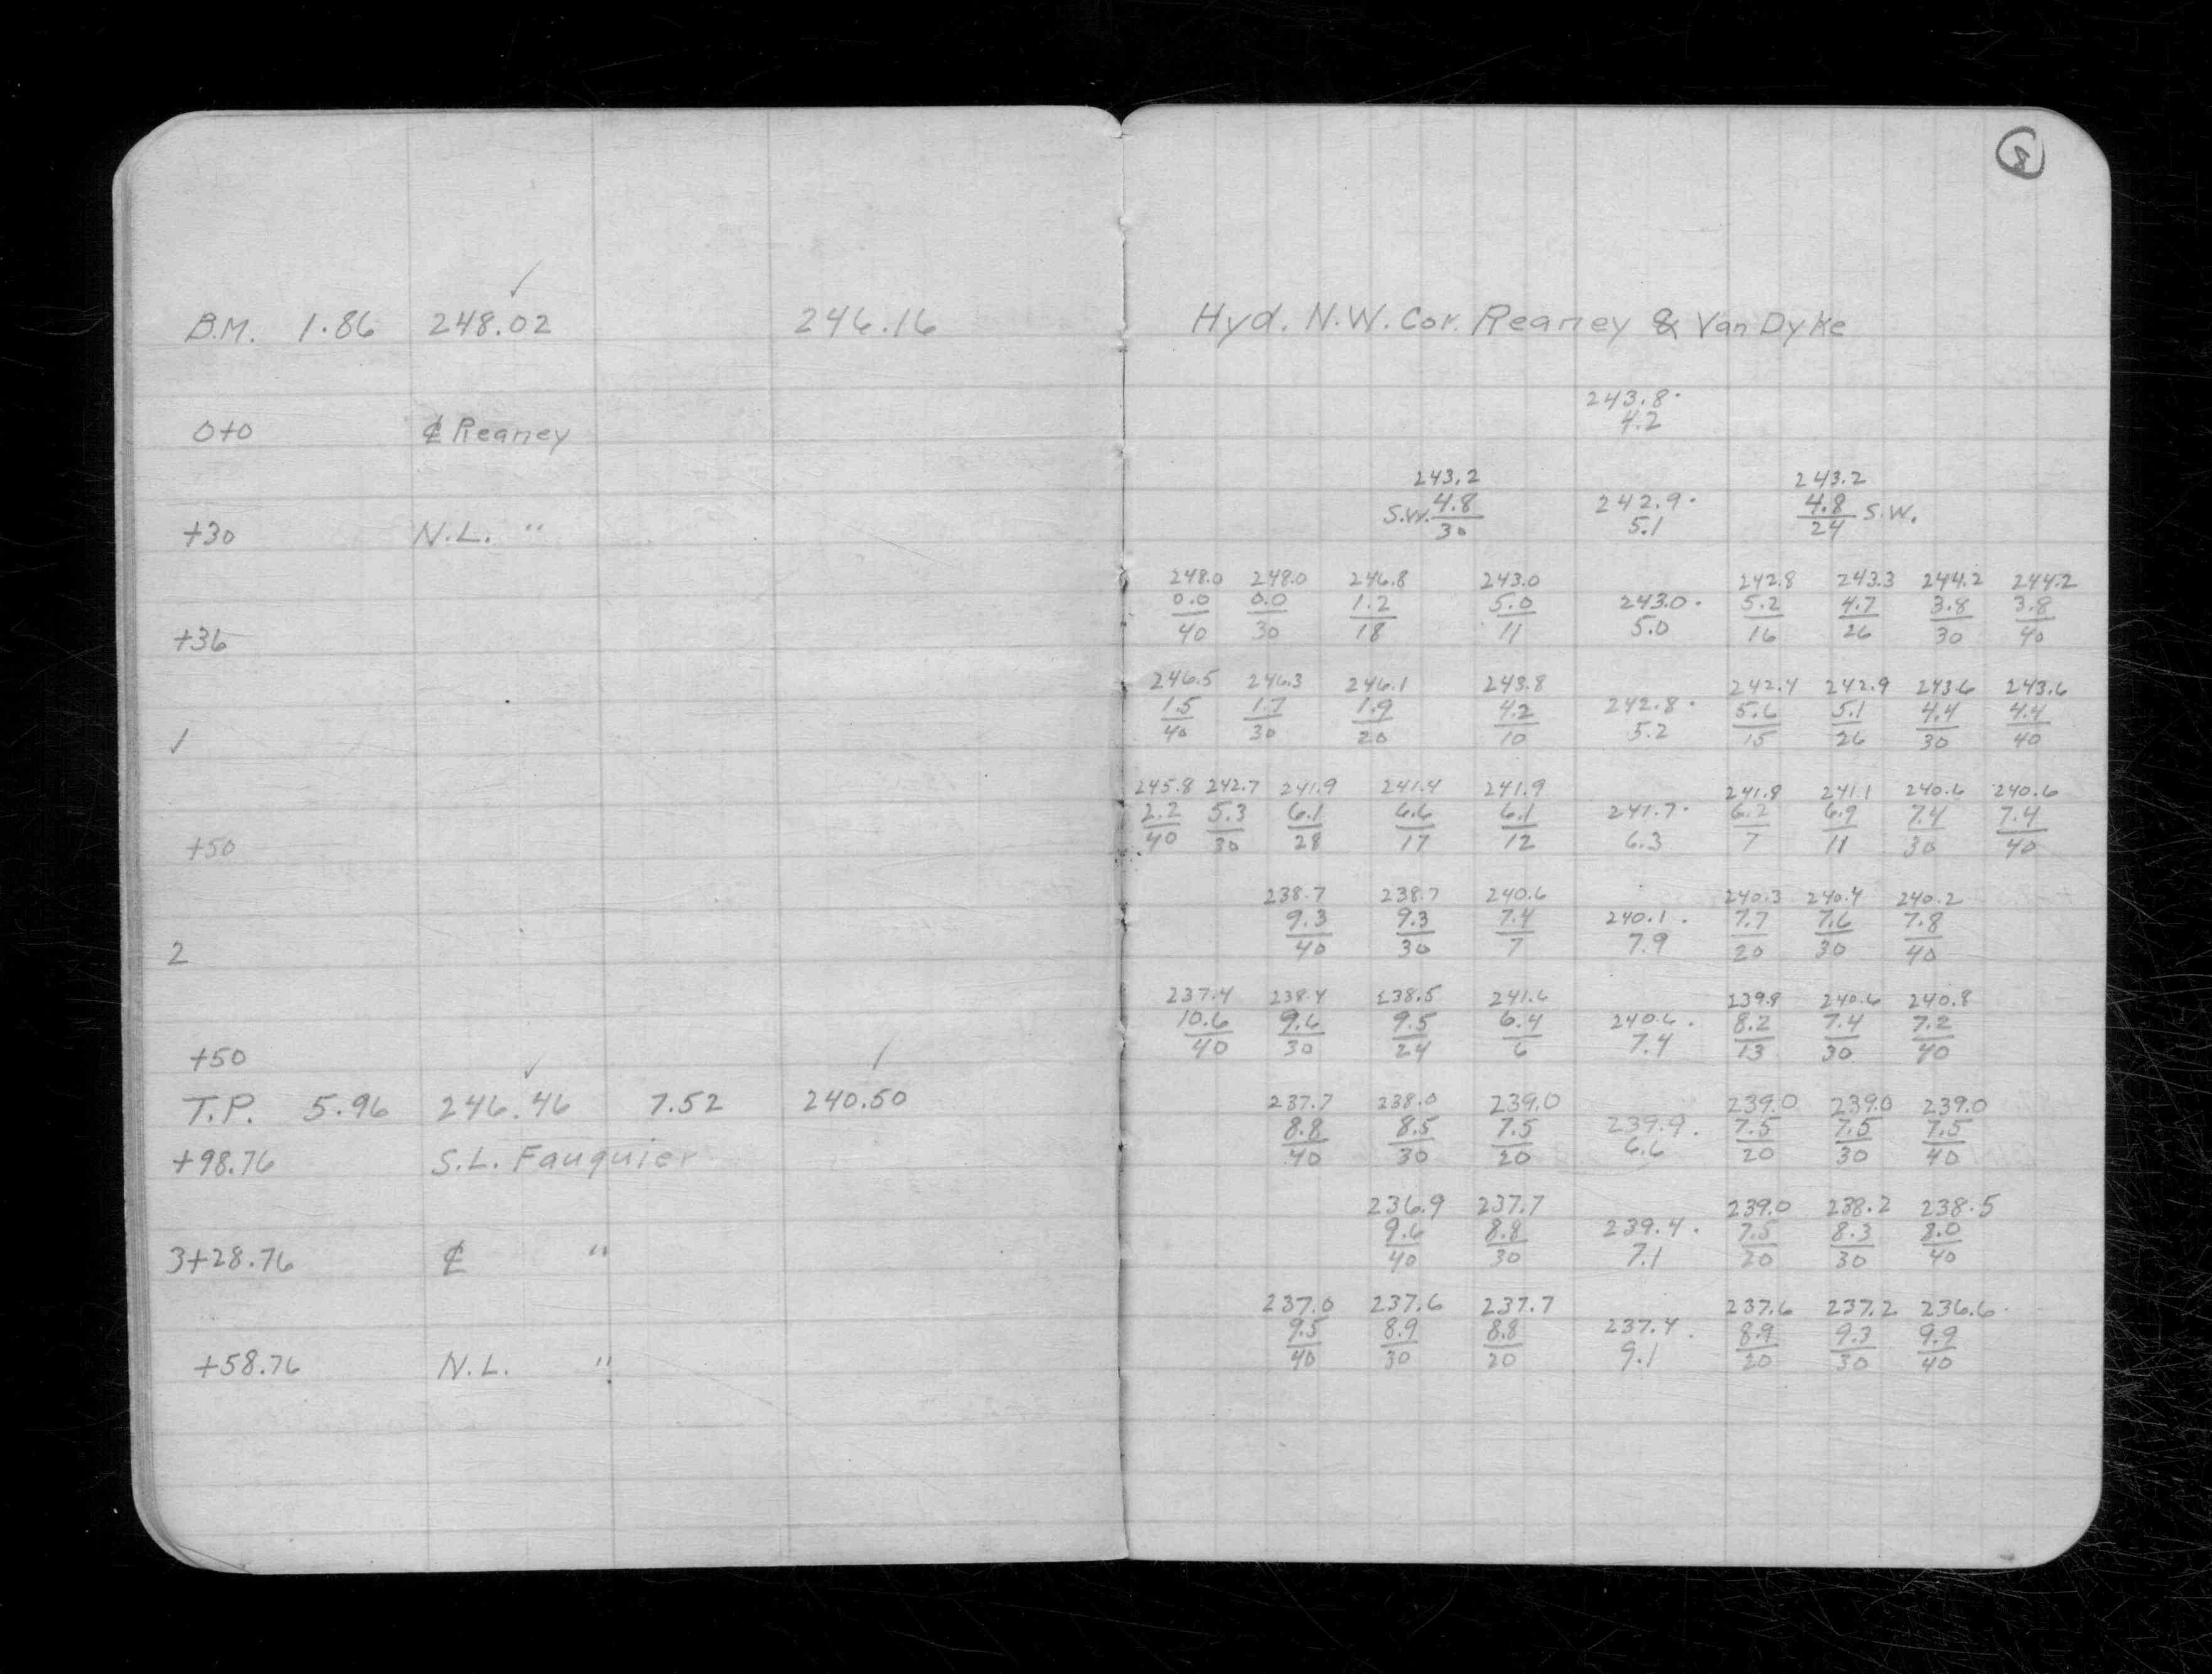 8
B.M. 1.86 248.02 ✓ 246.16 Hyd. N.W. Cor. Reaney & Van Dyke
243.8·
0+0 ₵ Reaney 4.2
243.2 243.2
S.W. 4.8 242.9· 4.8 S.W.
+30 N.L. " 30 5.1 24
248.0 248.0 246.8 243.0 242.8 243.3 244.2 244.2
0.0 0.0 1.2 5.0 243.0· 5.2 4.7 3.8 3.8
+36 40 30 18 11 5.0 16 26 30 40
246.5 246.3 246.1 243.8 242.4 242.9 243.6 243.6
1.5 1.7 1.9 4.2 242.8· 5.6 5.1 4.4 4.4
1 40 30 20 10 5.2 15 26 30 40
245.8 242.7 241.9 241.4 241.9 241.8 241.1 240.6 240.6
2.2 5.3 6.1 6.6 6.1 241.7· 6.2 6.9 7.4 7.4
+50 40 30 28 17 12 6.3 7 11 30 40
238.7 238.7 240.6 240.3 240.4 240.2
9.3 9.3 7.4 240.1· 7.7 7.6 7.8
2 40 30 7 7.9 20 30 40
237.4 238.4 238.5 241.6 239.8 240.6 240.8
10.6 9.6 9.5 6.4 240.6· 8.2 7.4 7.2
+50 40 30 24 6 7.4 13 30 40
T.P. 5.96 246.46 ✓ 7.52 240.50 ✓ 237.7 238.0 239.0 239.0 239.0 239.0
8.8 8.5 7.5 239.9· 7.5 7.5 7.5
+98.76 S.L. Fauquier 40 30 20 6.6 20 30 40
236.9 237.7 239.0 238.2 238.5
9.6 8.8 239.4· 7.5 8.3 8.0
3+28.76 ₵ " 40 30 7.1 20 30 40
237.0 237.6 237.7 237.6 237.2 236.6·
9.5 8.9 8.8 237.4· 8.9 9.3 9.9
+58.76 N.L. " 40 30 20 9.1 20 30 40